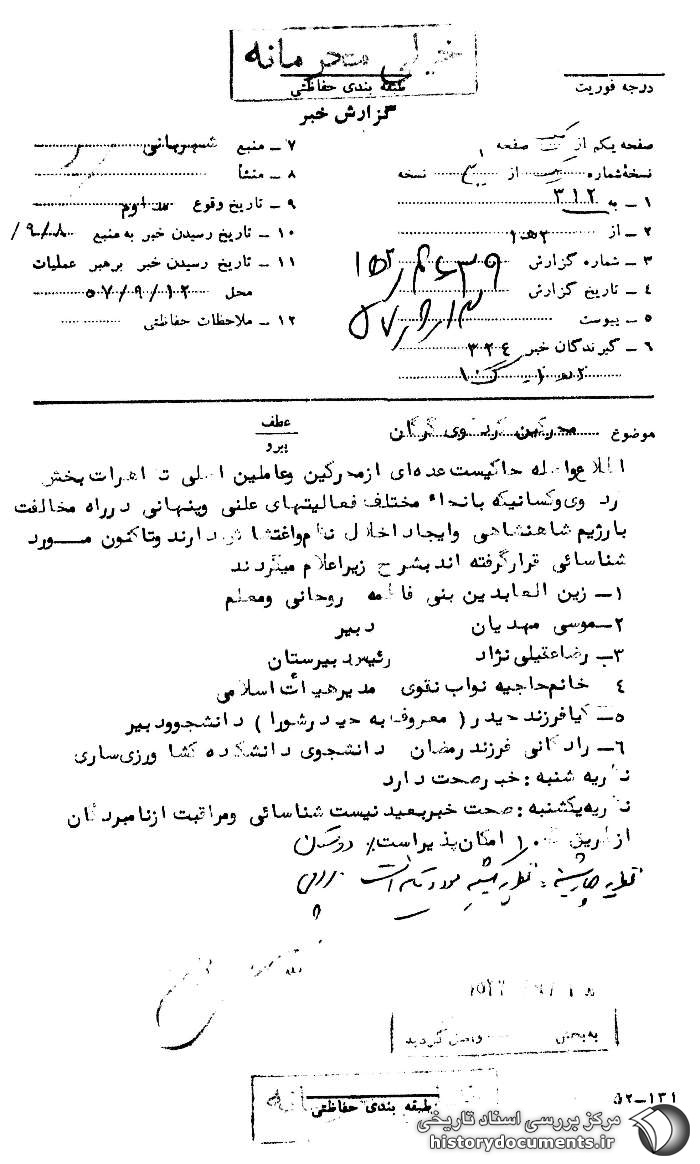 خیلی محرمانه
طبقه بندی حفاظتی
درجه فوریت
گزارش خبر
صفحه یکم از یک صفحه
نسخهٔ شماره یک از نسخه
۱ ـ به ۳۱۲
۲ ـ از ۱ﻫ۲
۳ ـ شماره گزارش
۴ ـ تاریخ گزارش
۵ ـ پیوست
۶ ـ گیرندگان خبر ۳۲۴
۷ ـ منبع شهربانی
۸ ـ منشأ
۹ ـ تاریخ وقوع مداوم
۱۰ ـ تاریخ رسیدن خبر به منبع ۹/۸/
۱۱ ـ تاریخ رسیدن خبر برهبر عملیات
محل ۵۷/۹/۱۲
۱۲ ـ ملاحظات حفاظتی
موضوع محرکین کردکوی گرگان
عطف
پیرو
اطلاع واصله حاکیست عده‌ای از محرکین وعاملین اصلی تظاهرات بخش
کردکوی وکسانیکه بانحاء مختلف فعالیتهای علنی وپنهانی در راه مخالفت
با رژیم شاهنشاهی وایجاد اخلال نظم واغتشاش دارند وتاکنون مورد
شناسائی قرار گرفته اند بشرح زیر اعلام میگردند
۱ـ زین العابدین بنی فاطمه روحانی ومعلم
۲ـ موسی مهدیان دبیر
۳ـ رضا عقیلی نژاد رئیس دبیرستان
۴ خانم حاجیه نواب نقوی مدیر هیأت اسلامی
۵ـ کیا فرزند حیدر ( معروف به حیدر شورا ) دانشجو ودبیر
۶ـ رادکانی فرزند رمضان دانشجوی دانشکده کشاورزی ساری
نظریه شنبه : خبر صحت دارد
نظریه یکشنبه : صحت خبر بعید نیست شناسائی ومراقبت از نامبردگان
از طریق امکان پذیر است٪
به بخش واصل گردید
طبقه بندی حفاظتی
۱۳۱ـ۵۲
مرکز بررسی اسناد تاریخی
historydocuments.ir